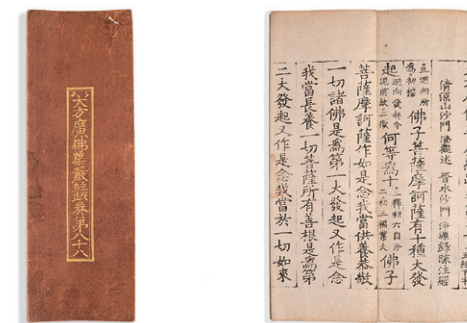 大方廣佛華嚴經疏卷第八十八
清涼山沙門 澄觀述 晉水沙門 淨源錄疏注經
佛子菩薩摩訶薩有十種大發
起 何等為十 佛子
菩薩摩訶薩作如是念我當供養恭敬
一切諸佛是為第一大發起又作是念
我當長養一切菩薩所有善根是為第
二大發起又作是念我當於一切如來